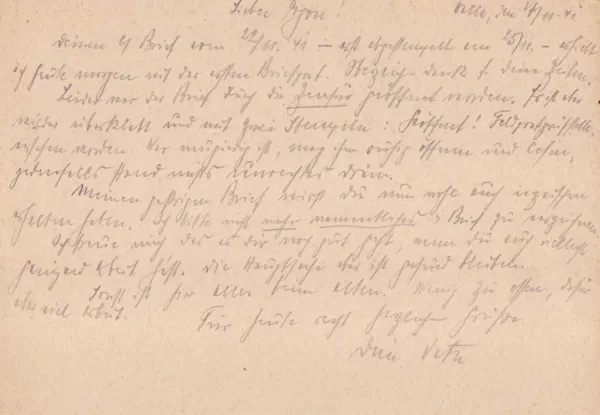 Lieber Egon!
Deinen lb Brief vom 22/11. 41 – erst abgestempelt am 25/11. – erhielt
ich heute morgen mit der ersten Briefpost. Herzlich dank f. deine Zeilen.
Leider war der Brief durch die Zensur geöffnet worden. Er ist aber
wieder überklebt und mit zwei Stempeln: Geöffnet! Feldpostprüfstelle,
versehen worden. Wer neugierig ist, mag ihn ruhig öffnen und lesen,
jedenfalls stand nichts Unrechtes drin.
Meinen gestrigen Brief wirst du nun wohl auch inzwischen
erhalten haben. Ich bitte nicht mehr namentliches i Brief zu verzeichnen.
Ich freue mich das es dir noch gut geht, wenn du auch vielleicht
genügend Arbeit hast. Die Hauptsache aber ist gesund bleiben.
Sonst ist hier alles beim alten. Wenig zu essen, dafür
aber viel Arbeit.
Für heute recht herzliche Grüße
Dein Vater